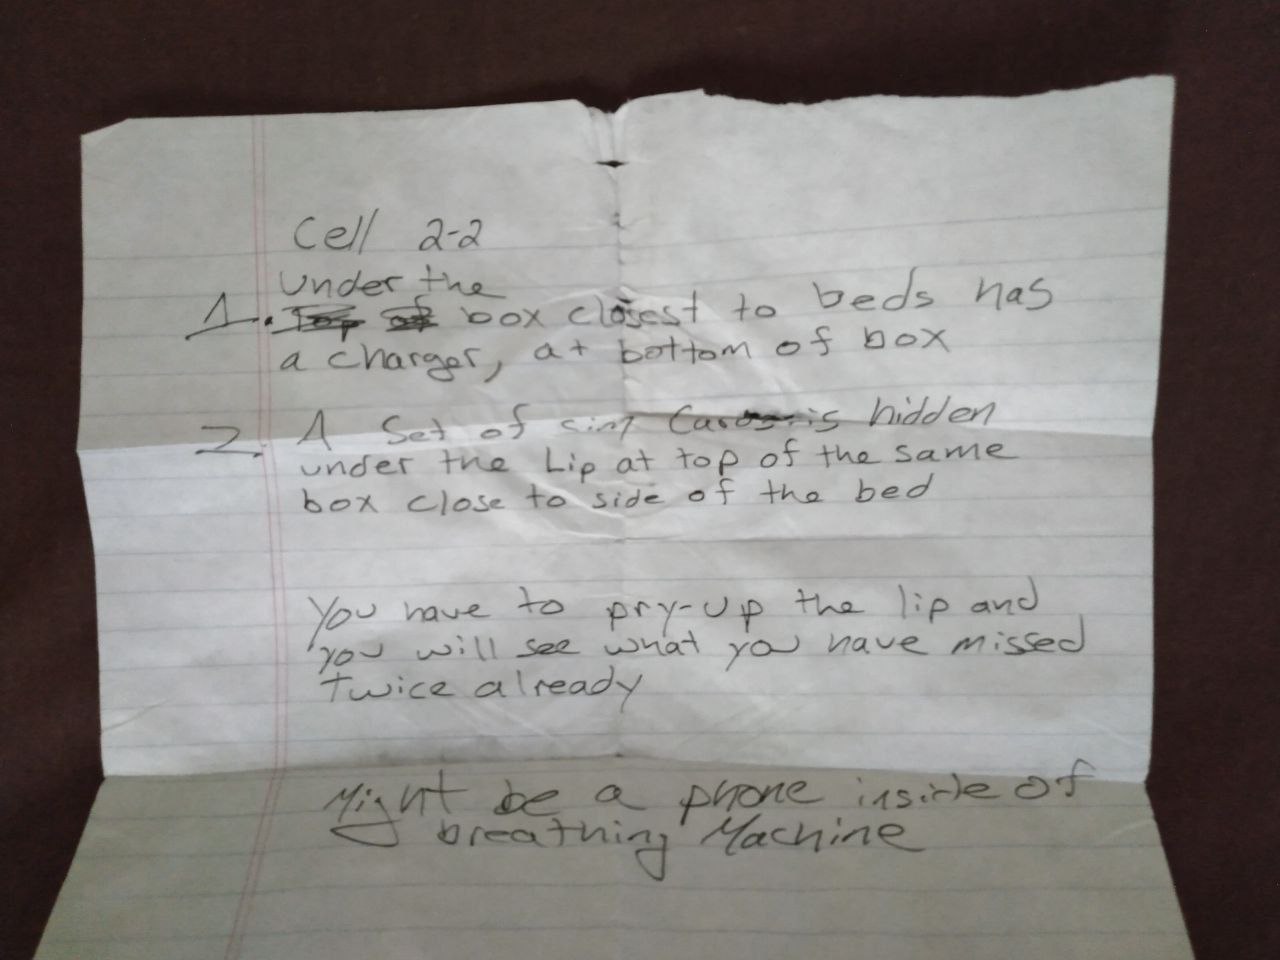 Cell 2-2
Under the
1. Top of box closest to beds has
a charger, at bottom of box
2. A Set of sim Card is hidden
under the Lip at top of the same
box close to side of the bed
You have to pry-up the lip and
you will see what you have missed
Twice already
Might be a phone inside of
breathing Machine